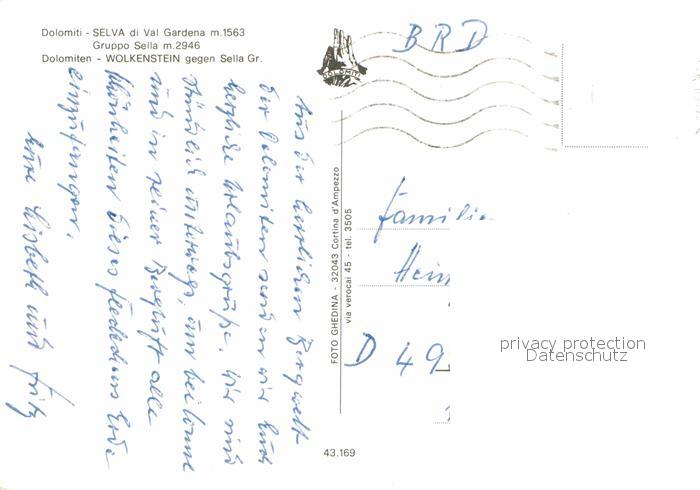 Dolomiti - SELVA di Val Gardena m.1563
Gruppo Sella m.2946
Dolomiten - WOLKENSTEIN gegen Sella Gr.
Aus der herrlichen Bergwelt
der Dolomiten senden wir Euch
herzliche Urlaubsgrüße. Wir sind
ständig unterwegs, um bei Sonne
und in reiner Bergluft alle
Schönheiten dieses Erde
einzufangen.
Eure Lisbeth und Fritz
DOLOMITI
BRD
FOTO GHEDINA - 32043 Cortina d'Ampezzo
via verocai 45 - tel. 3505
Familie
Hein
D 49
privacy protection
Datenschutz
43.169